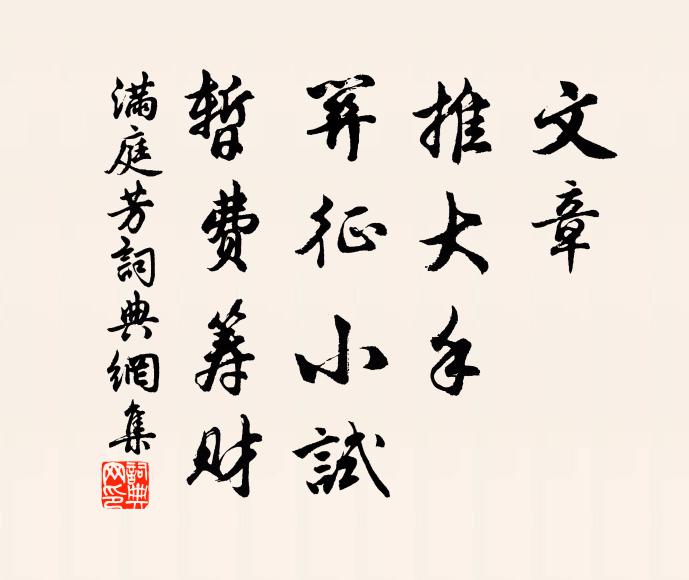 文章
推大手
筭征小試
暫費筹財
滿庭芳詞典網集
詞典网印